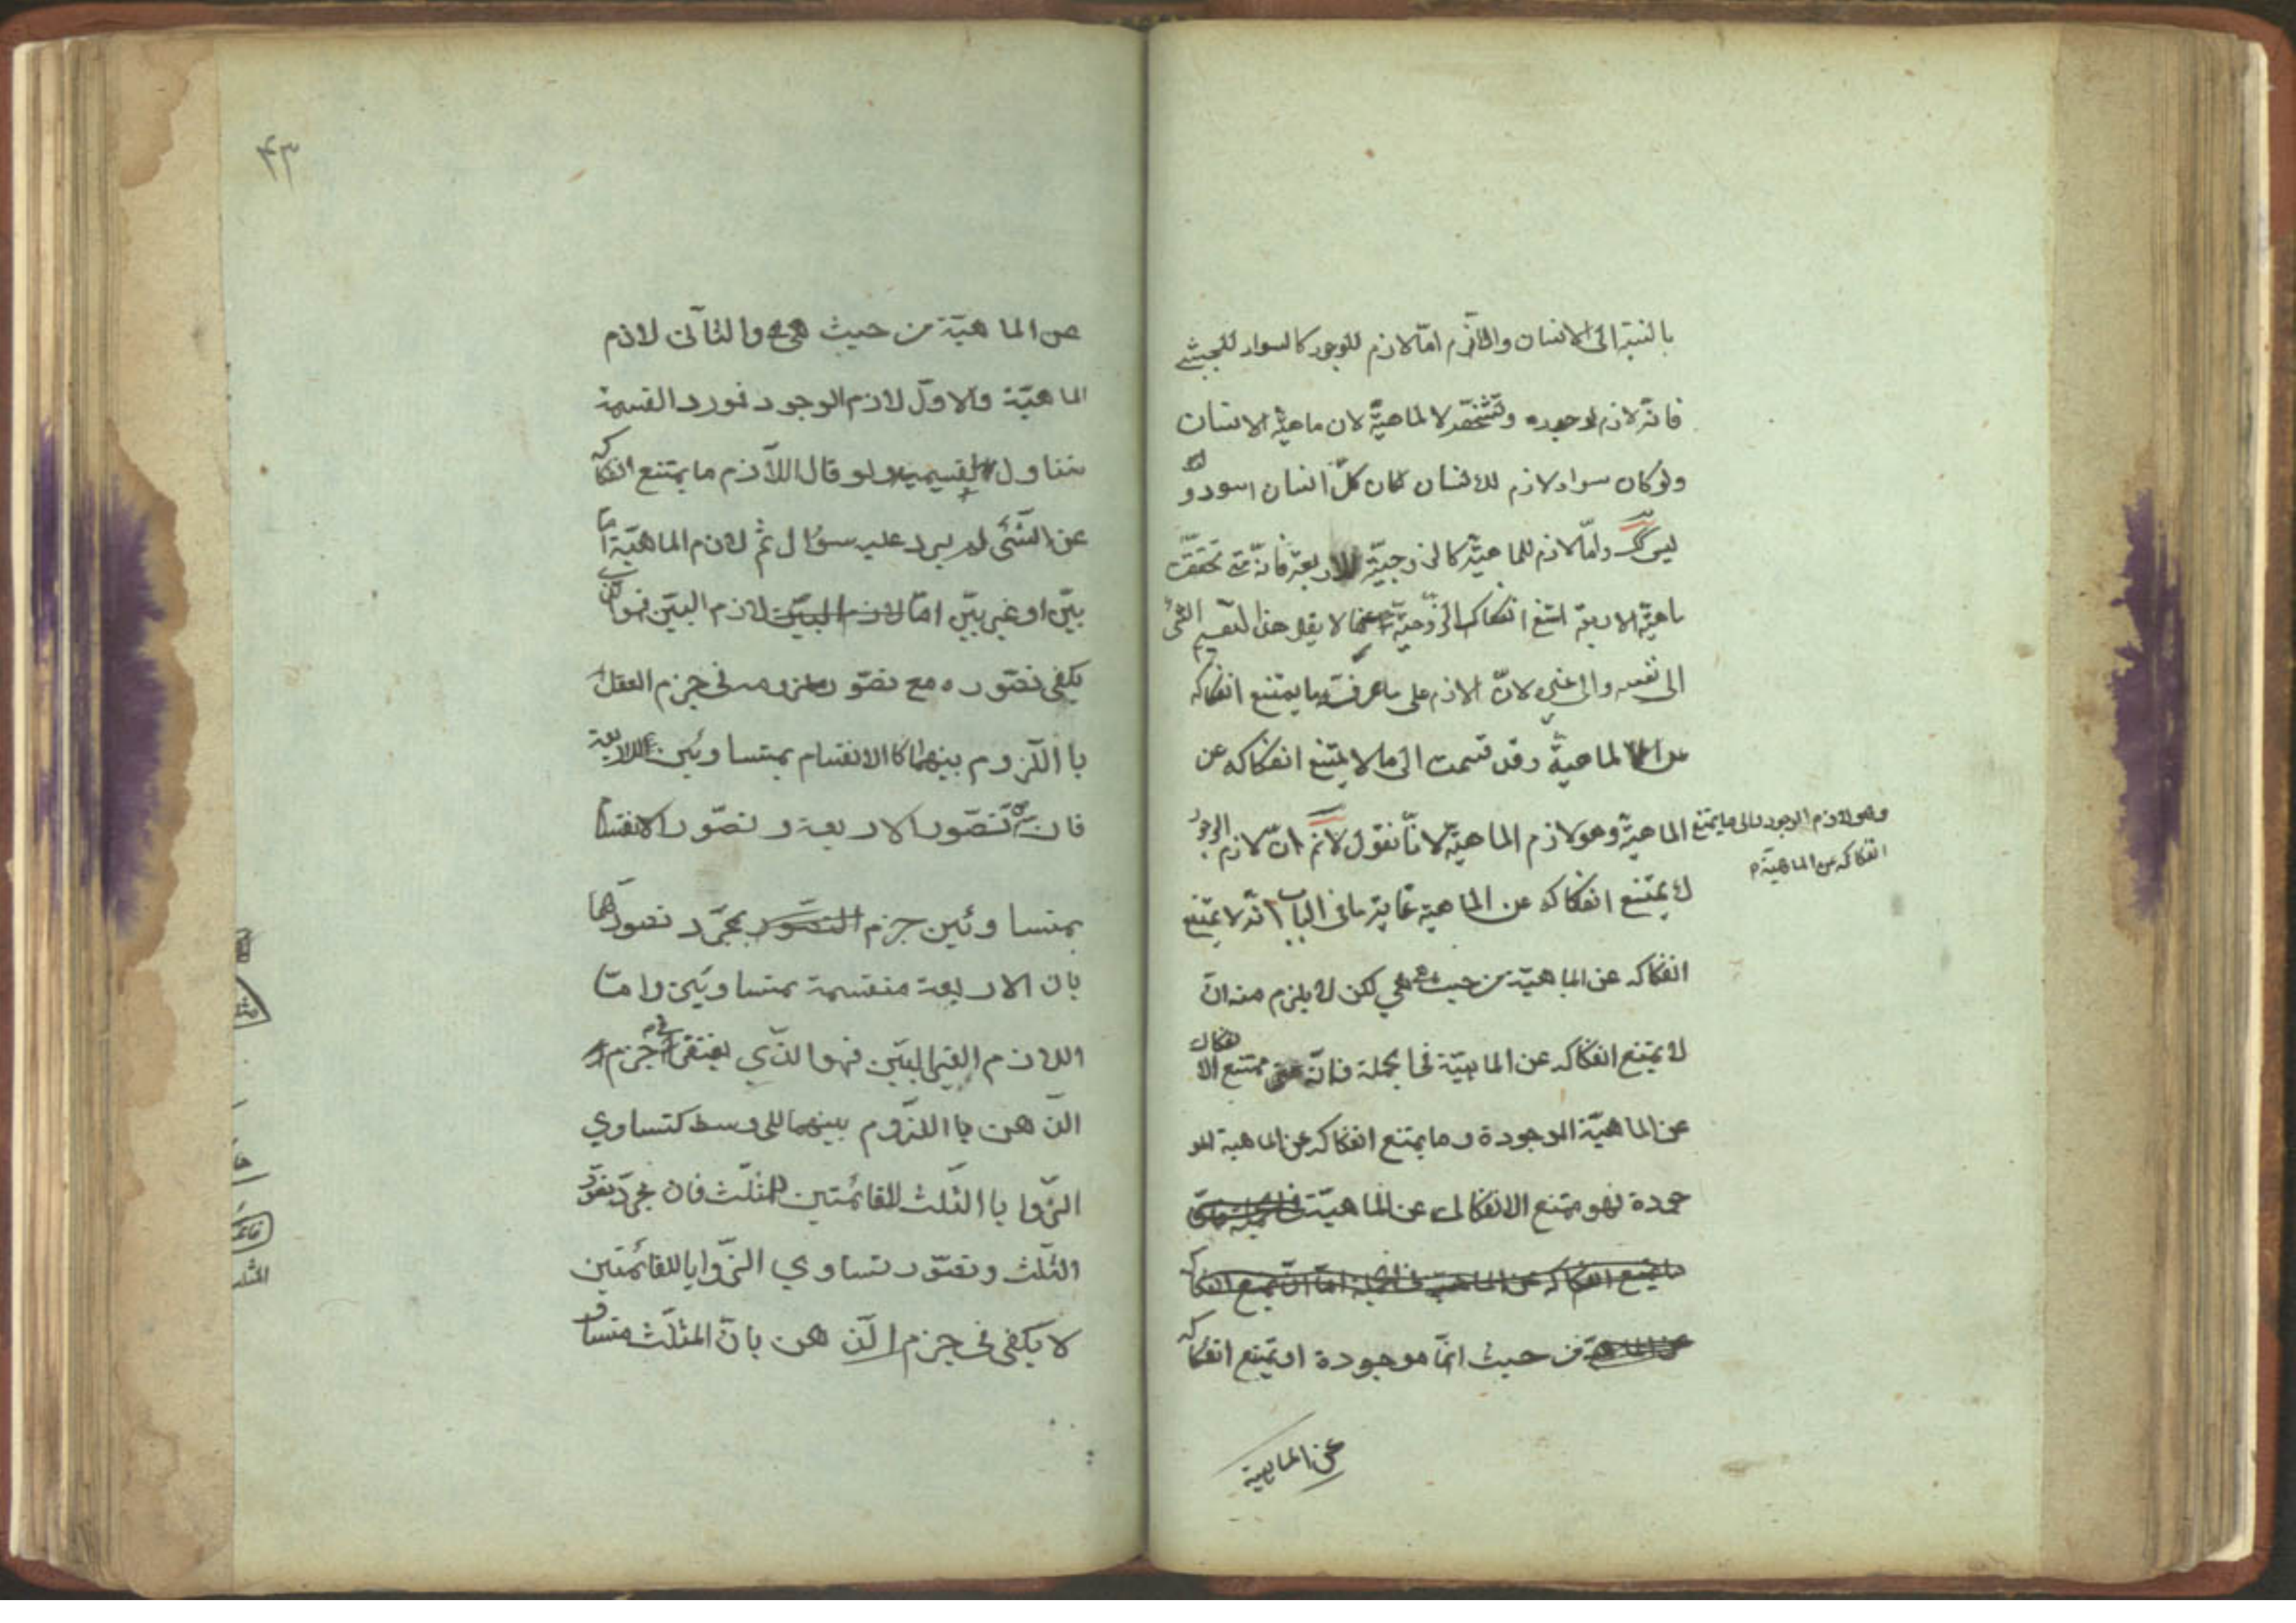 بالنسبة الى الانسان واللازم امّا لازم للوجود كالسواد للحبشي
فانّه لازم لوجوده وتشخّصه لا لماهيّة لان ماهيّة الانسان
ولو كان سواد لازم للانسان لكان كلّ انسان اسود و
ليس كك وامّا لازم للماهيّة كالزوجيّة للاربعة فانّه متى تحقّقت
ماهيّة الاربعة امتنع انفكاك الزّوجيّة عنها لا يقل هذا تقسيم الشئ
الى نفسه والى غيره لانّ الازم على ما عرفت ما يمتنع انفكاكه
عن الماهية وقد قسمت الى ما لا يمتنع انفكاكه عن
الماهيّة وهو لازم الماهيّة لانّا نقول لانم انّ لازم الوجود
وهو لازم الوجود والى ما يمتنع
انفكاكه عن الماهيّة م
لا يمتنع انفكاكه عن الماهية غاية ما فى الباب انّه لا يمتنع
انفكاكه عن الماهيّة من حيث هي هي لكن لا يلزم منه انّ
لا يمتنع انفكاكه عن الماهيّة فى الجملة فانّه ممتنع الانفكاك
عن الماهيّة الموجودة وما يمتنع انفكاكه عن الماهية المو
جودة فهو ممتنع الانفكاك عن الماهيّة فى الجملة فانّ
ما يمتنع انفكاكه عن الماهية فى الجملة امّا انّ يمتنع انفكاكه
عن الماهيّة من حيث انّها موجودة او يمتنع انفكاكه
عن الماهية
۴۳
عن الماهيّة من حيث هي هي والثاني لازم
الماهيّة والاوّل لازم الوجود فمورد القسمة
متناول لقسيميه ولو قال اللاّزم ما يمتنع انفكاكه
عن الشّئ لم يرد عليه سؤال ثمّ لازم الماهيّة امّا
بيّن او غير بيّن امّا لازم البيّن لازم البيّن فهو الذي
يكفي تصّوره مع تصوّر ملزومه فى جزم العقل
باا للّزوم بينهما كا الانقسام بمتساويين للاربعة
فان من تصّور الاربعة وتصّور الانقسام
بمتساوئين جزم التصّور بمجرّد تصورهما
بان الاربعة منقسمة بمتساويين وامّا
اللازم الغير البيّن فهو الذّي يفتقر فى جزم
الذّهن باا للزوم بينهما الى وسط كتساوي
الزّوايا باا لثلث للقائمتين للمثلّث فان مجرّد تصوّر
الثلّث وتصّور تساوي الزّوايا للقائمتين
لا يكفى فى جزم الذّهن بانّ المثلّث متساو